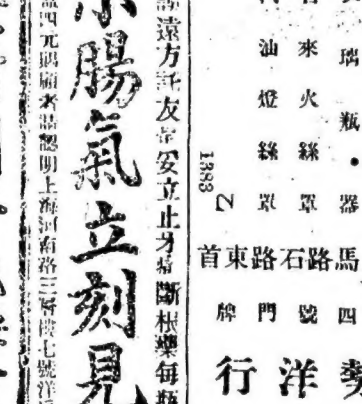 璃瓶•器
來火絲罩
油燈絲罩
乙
1883
馬路石路東首
四號門牌
勢洋行
遠方託友帶妥立止牙痛斷根藥每瓶
腸氣立刻見
四元賜顧者請認明上海河南路三層樓七號洋